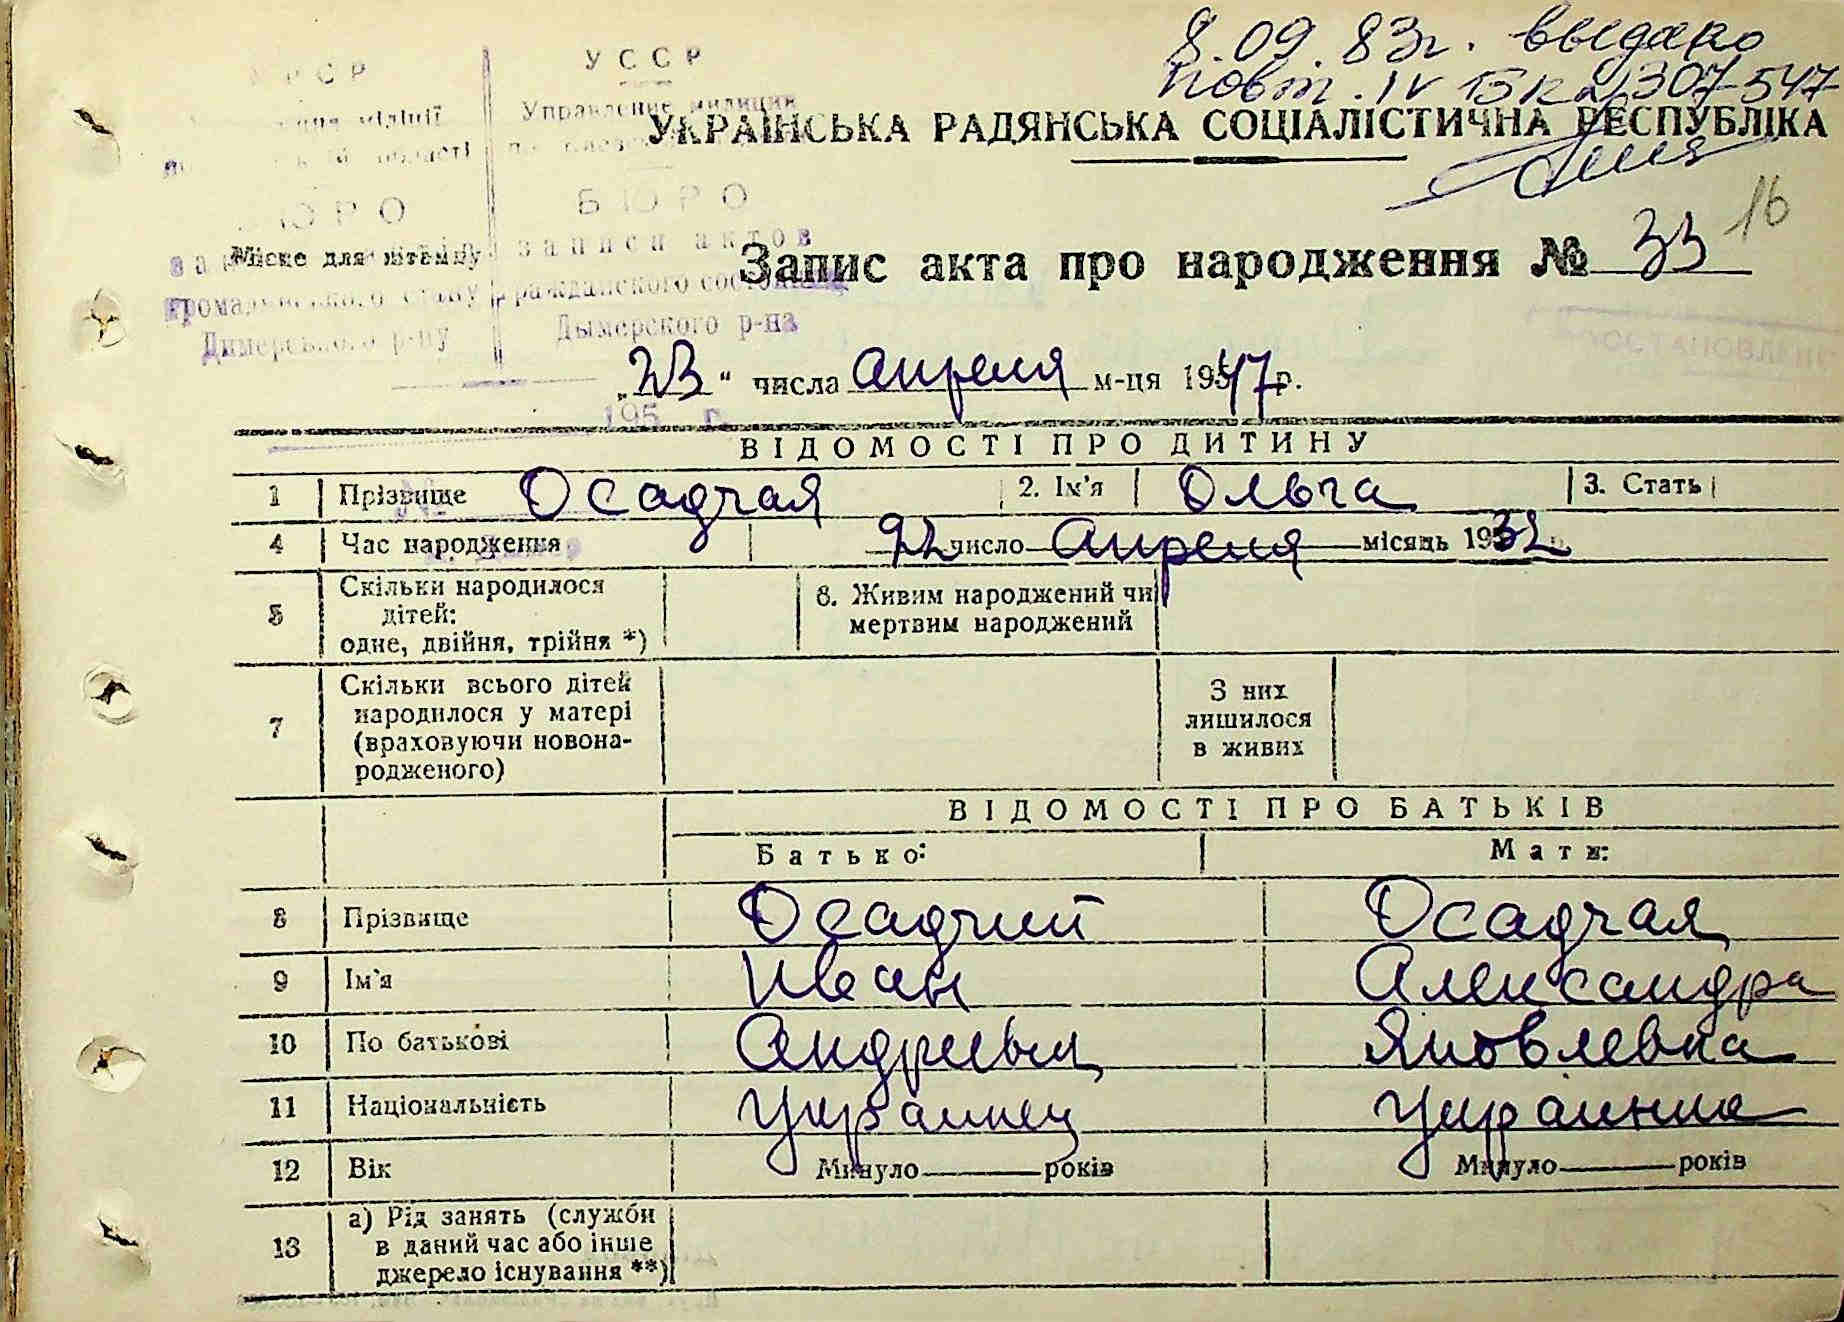 8.09.83г. выдано
повт. IV БК № 307547
УССР
Управление милиции
УКРАЇНСЬКА РАДЯНСЬКА СОЦІАЛІСТИЧНА РЕСПУБЛІКА
БЮРО
записи актов
гражданского состояния
Дымерского р-на
БЮРО
Місце для штампу
громадянського стану
Димерського р-ну
195 г.
16
Запис акта про народження № 33
„23“ числа апреля м-ця 1957 р.
ВІДОМОСТІ ПРО ДИТИНУ
1 Прізвище Осадчая 2. Ім'я Ольга 3. Стать
4 Час народження 22 число апреля місяць 1932
5 Скільки народилося дітей: одне, двійня, трійня *) 6. Живим народжений чи мертвим народжений
7 Скільки всього дітей народилося у матері (враховуючи новонародженого) З них лишилося в живих
ВІДОМОСТІ ПРО БАТЬКІВ
Батько: Мати:
8 Прізвище Осадчий Осадчая
9 Ім'я Иван Александра
10 По батькові Андреевич Яковлевна
11 Національність Украинец Украинка
12 Вік Минуло року років Минуло років
13 а) Рід занять (служби в даний час або інше джерело існування **)